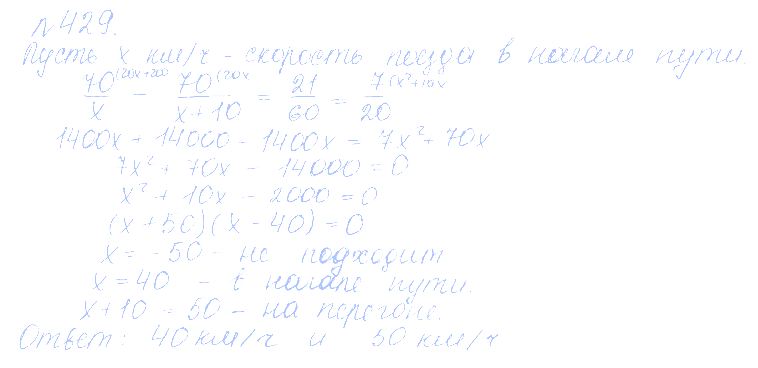 №429.
Пусть x км/ч - скорость поезда в начале пути.
70(20x+200 / x - 70(20x / x+10 = 21/60 = 7(x²+10x / 20
1400x + 14000 - 1400x = 7x² + 70x
7x² + 70x - 14000 = 0
x² + 10x - 2000 = 0
(x+50)(x-40) = 0
x = -50 - не подходит
x = 40 - в начале пути.
x+10 = 50 - на перегоне.
Ответ: 40 км/ч и 50 км/ч